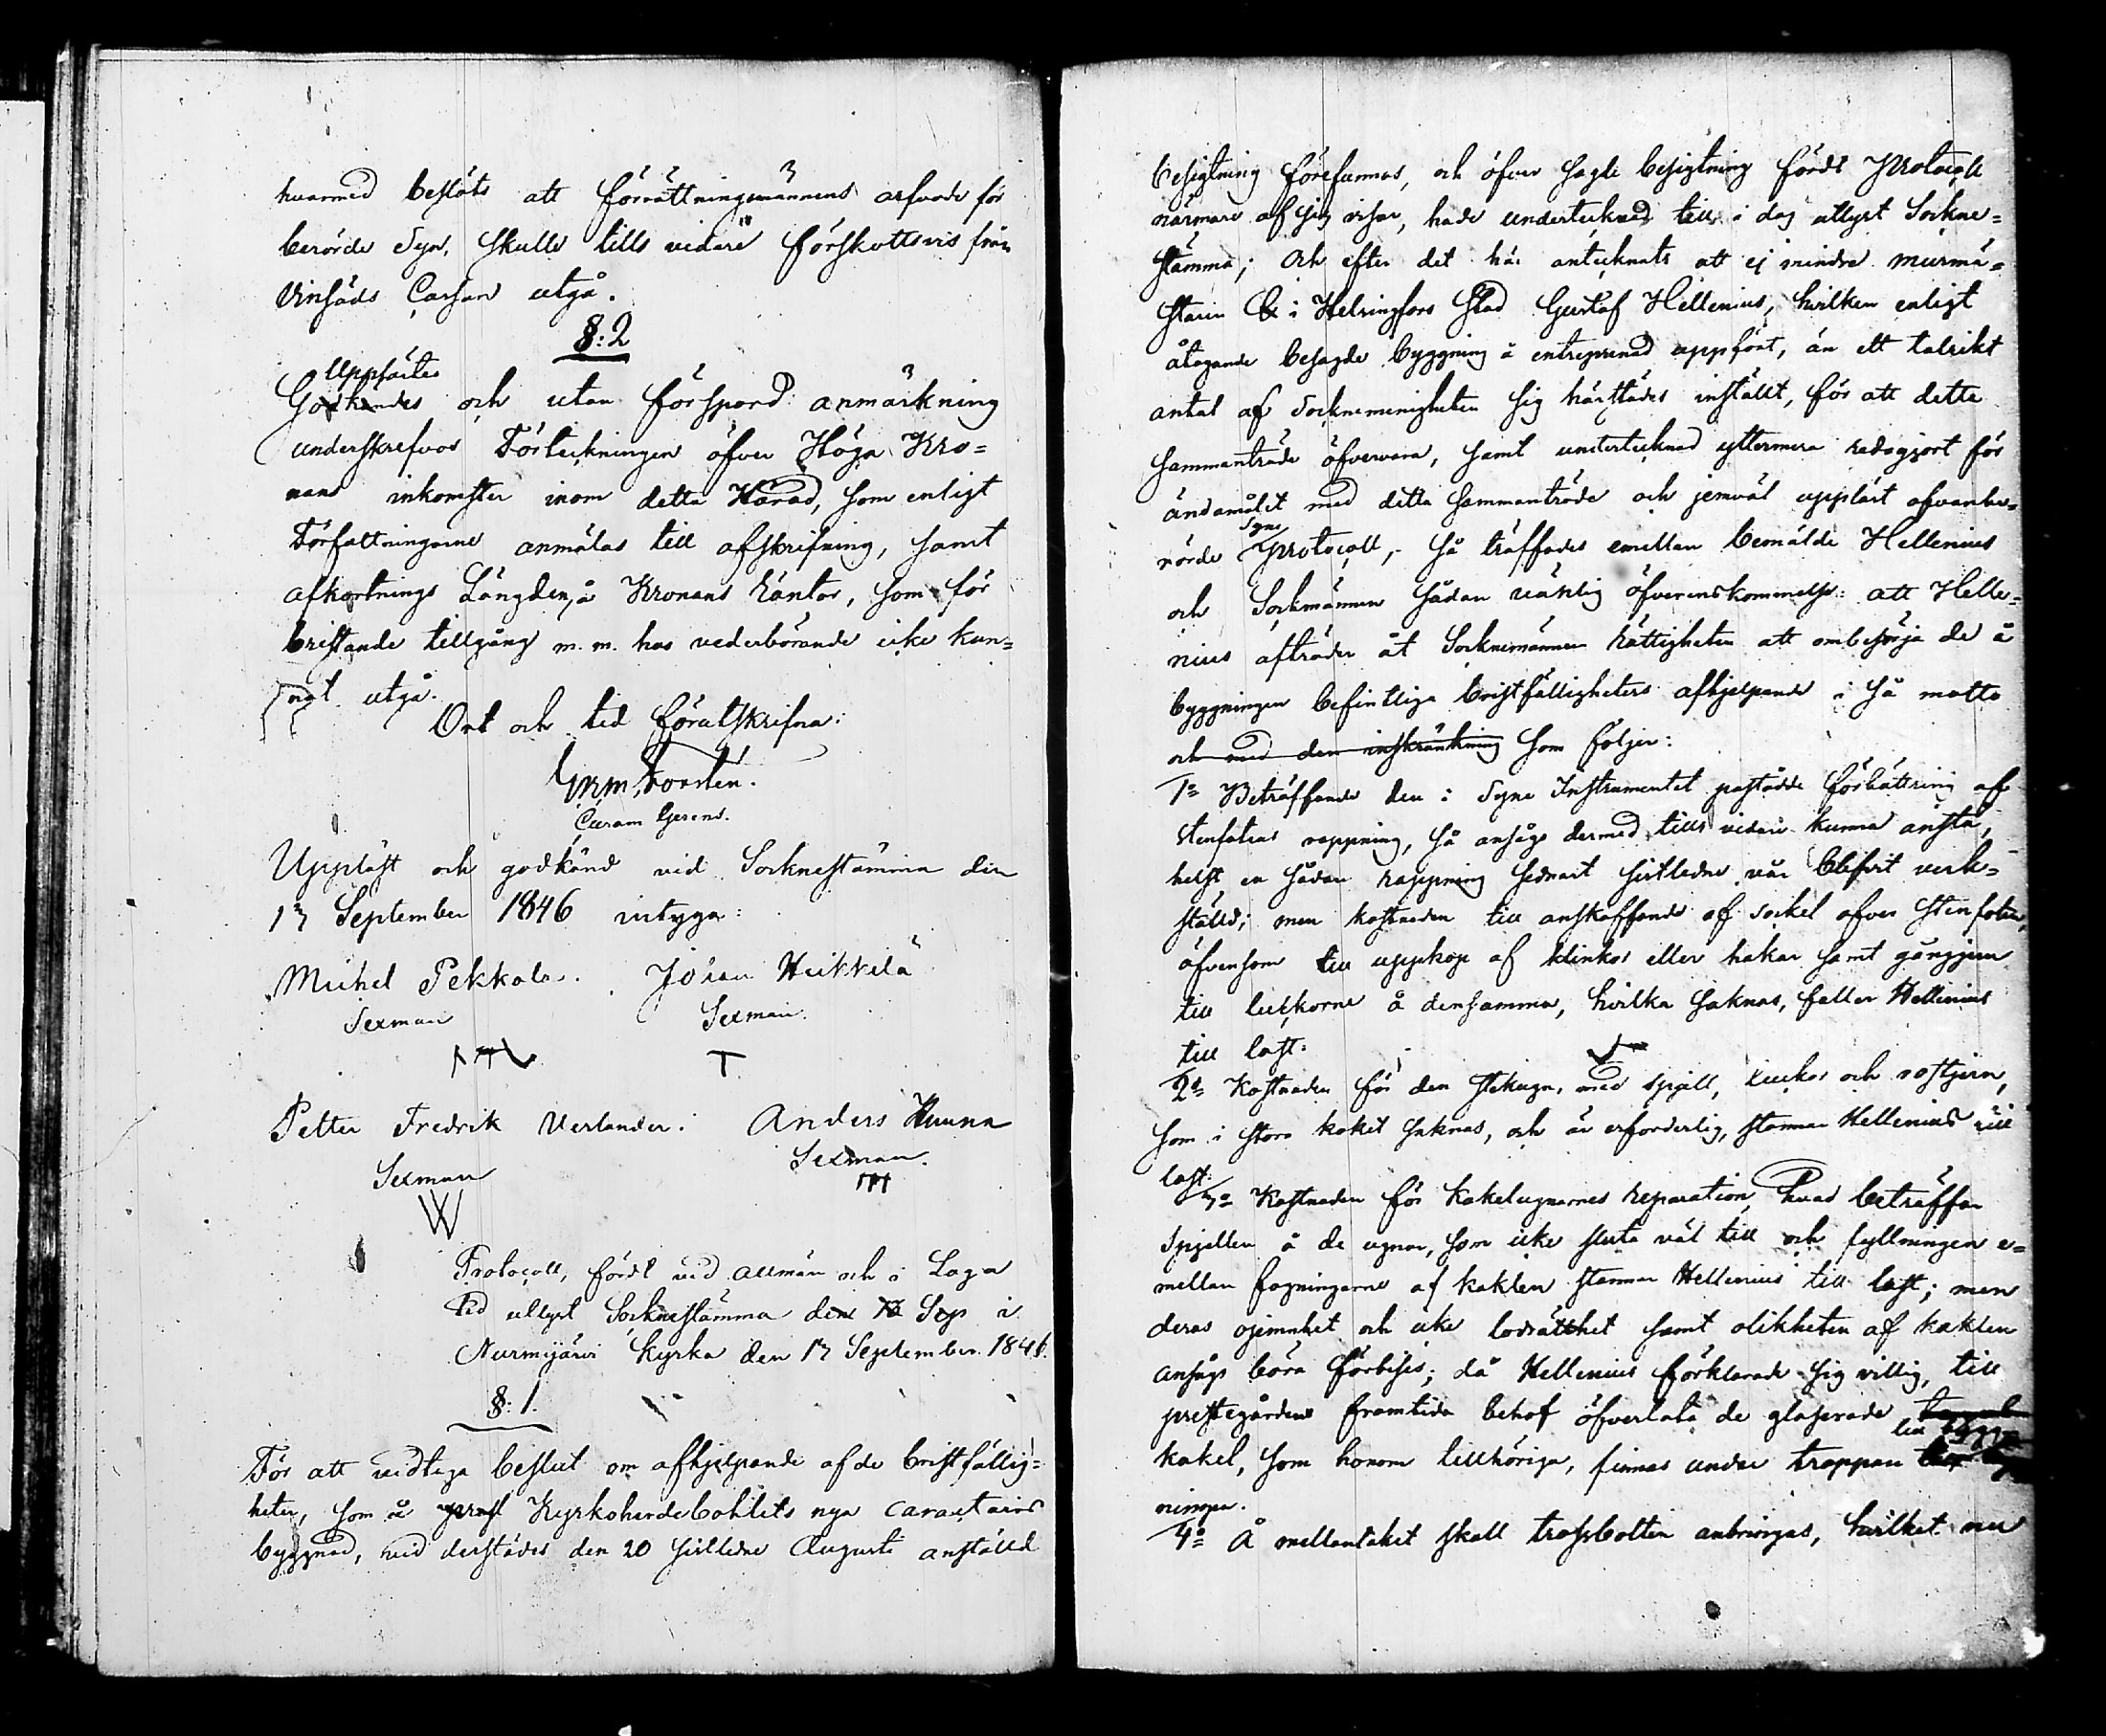 hvarmed beslöts att förrättningsmännens arfvode för
berörde Syn, skulle tills vidare förskottsvis från
Vinsäds Cassan utgå.
§: 2
Upplästes
Godkändes och utan förspord anmärkning
underskrefvos Förteckningen öfver Höga Kro=
nans inkomster inom detta Härad, som enligt
Författningarne anmälas till afskrifning, samt
afkortnings Längden, å Kronans räntor, som för
bristande tillgång m. m. hos vederbörande icke kun=
nat utgå.
Ort och tid förutskrifna:
Forstén.
Curam Gerens.
Uppläst och godkänd vid Socknestämma den
13 September 1846 intyga:
Michel Pekkala. Johan Heikkilä
Sexman Sexman.
Petter Fredrik Verlander. Anders Kuuna
Sexman Sexman.
Protocoll, fördt vid allmän och i Laga
tid utlyst Socknestämma den 13 Sep i
Nurmijärvi Kyrka den 13 September 1846.
§: 1.
För att vidtaga beslut om afhjelpande af de bristfällig=
heter, som å Kyrkoherdebohlets nya caractairs
byggnad, vid derstädes den 20 sistledne Augusti anställd
besigtning förefunnos, och öfver sagde besigtning fördt Protocoll
närmare af sig visar, hade undertecknad till i dag utlyst Sockne=
stämma; Och efter det här antecknats att ej mindre murmä=
staren i Helsingfors Stad Gustaf Hellenius, hvilken enligt
åtagande besagde byggning å entreprenad uppfört, än ett talrikt
antal af Sockneminigheten sig härstädes inställt, för att detta
sammanträde öfvervara, samt undertecknad yttermera redogjort för
ändamålet med detta sammanträde och jemväl uppläst ofvanbe=
Syne
rörde Protocoll,- så träffades emellan bemälde Hellenius
och Sockmännen sådan vänlig öfverenskommelse: att Helle=
nius afträder åt Socknemännen rättigheten att ombesörja de å
byggningen befintliga bristfälligheters afhjelpande i så matto
och med den inskränkning som följer:
1o Beträffande den i Syne Instrumentet påstådde förbättring af
stenfotens rappning, så ansågs dermed tills vidare kunna anstå,
helst en sådan rappning sednast sistledne vår blifvit verk=
ställd; men kostnaden till anskaffande af sockel öfver stenfoten,
äfvensom till uppköp af klinkor eller hakar samt gångjern
till luckorne å densamma, hvilka saknas, faller Hellenius
till last.
2o Kostnaden för den stekugn, med spjell, luckor och rostjern,
som i stora köket saknas, och är erforderlig, stannar Hellenius till
last.
3o Kostnaden för kakelugnarnes reparation, hvad beträffar
Spjellen å de ugnar, som icke sluta väl till och fyllningen e=
mellan fogningarne af kaklen stannar Hellenius till last; men
deras ojemnhet och icke lodrätthet samt olikheten af kaklen
ansågs böra förbises; då Hellenius förklarade sig villig, till
prestegårdens framtida behof öfverlåta de glaserade
till bygg
kakel, som honom tillhöriga, finnas under trappan
ningen.
4o Å mellantaket skall trossbotten anbringas, hvilket nu